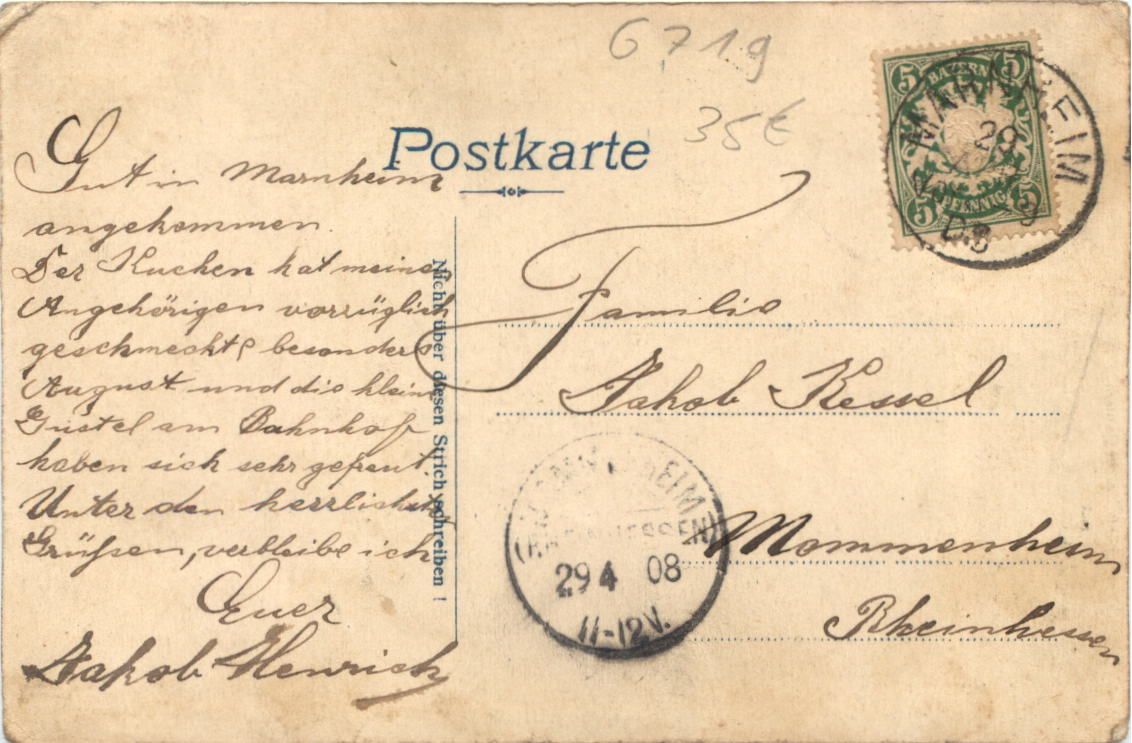 6719
35€
Postkarte
BAYERN
5 5
PFENNIG
5 5
MARNHEIM
29
08
Gut in Marnheim
angekommen.
Der Kuchen hat meinen
Angehörigen vorzüglich
geschmeckt, besonders
August und die kleine
Gustel am Bahnhof
haben sich sehr gefreut.
Unter den herrlichsten
Grüßen, verbleibe ich
Euer
Jakob Henrich
Nicht über diesen Strich schreiben!
Familie
Jakob Kessel
Mommenheim
Rheinhessen
(RHEINHESSEN)
29 4 08
11-12V.